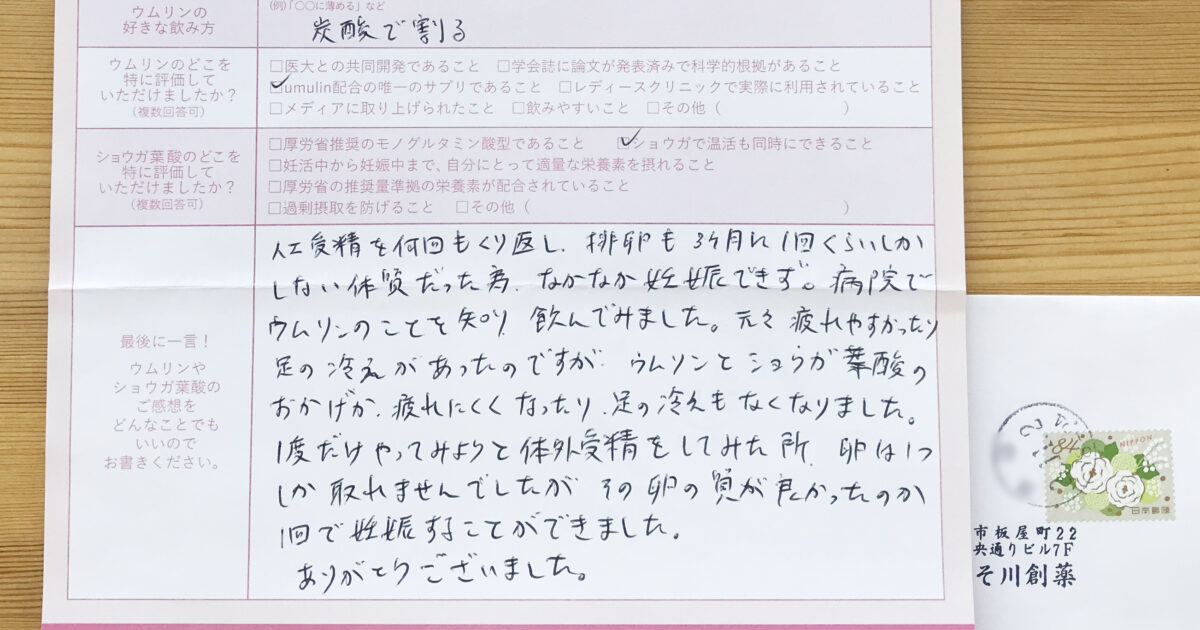 ウムリンの
好きな飲み方
(例)「〇〇に薄める」など
炭酸で割る
ウムリンのどこを
特に評価して
いただけましたか？
（複数回答可）
□医大との共同開発であること　□学会誌に論文が発表済みで科学的根拠があること
☑umulin配合の唯一のサプリであること　□レディースクリニックで実際に利用されていること
□メディアに取り上げられたこと　□飲みやすいこと　□その他（　　　　　　　　）
ショウガ葉酸のどこを
特に評価して
いただけましたか？
（複数回答可）
□厚労省推奨のモノグルタミン酸型であること　☑ショウガで温活も同時にできること
□妊活中から妊娠中まで、自分にとって適量な栄養素を摂れること
□厚労省の推奨量準拠の栄養素が配合されていること
□過剰摂取を防げること　□その他（　　　　　　　　）
最後に一言！
ウムリンや
ショウガ葉酸の
ご感想を
どんなことでも
いいので
お書きください。
人工受精を何回もくり返し、排卵も3ケ月に1回くらいしか
しない体質だった為、なかなか妊娠できず。病院で
ウムリンのことを知り、飲んでみました。元々疲れやすかったり
足の冷えがあったのですが、ウムリンとショウガ葉酸の
おかげか、疲れにくくなったり、足の冷えもなくなりました。
1度だけやってみようと体外受精をしてみた所、卵は1つ
しか取れませんでしたが、その卵の質が良かったのか
1回で妊娠することができました。
ありがとうございました。
84
NIPPON
日本郵便
市板屋町22
央通りビル7F
そ川創薬